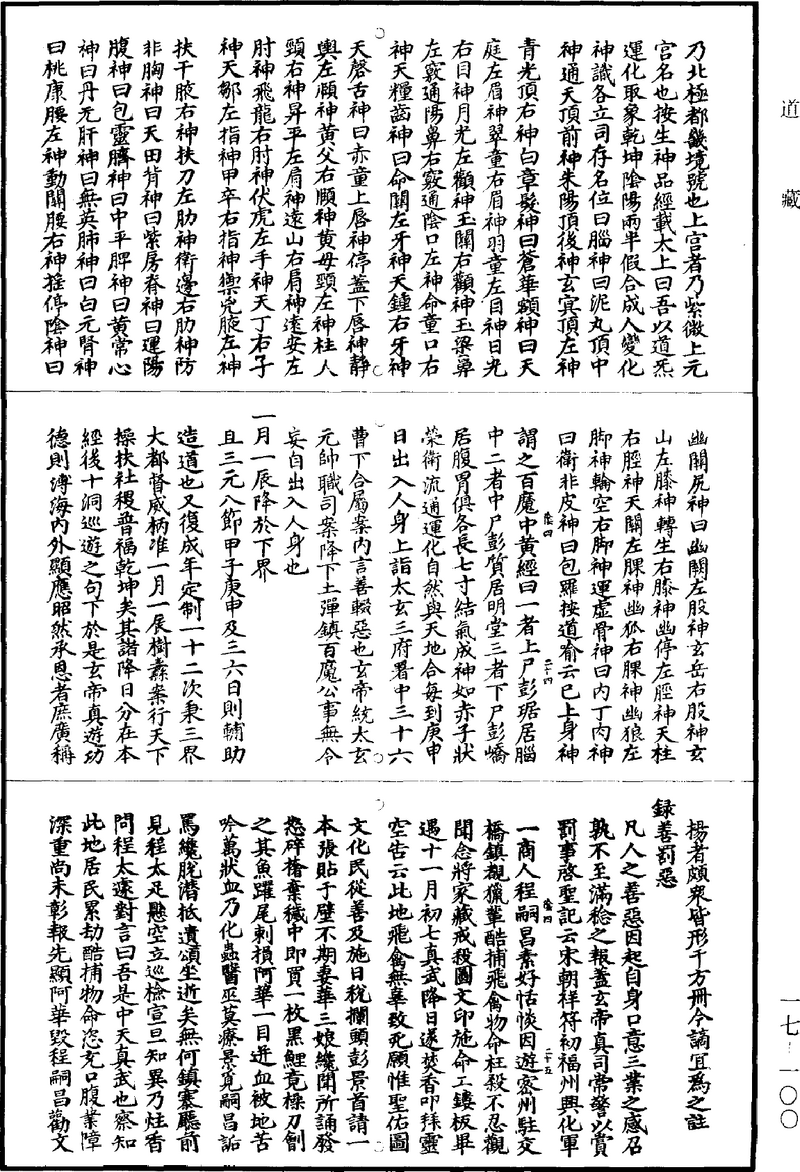 道藏
乃北極都畿境號也上宮者乃紫微上元
宮名也按生神品經載太上曰吾以道炁
運化取象乾坤陰陽兩半假合成人變化
神識各立司存名位曰腦神曰泥丸頂中
神通天頂前神朱陽頂後神玄冥頂左神
青光頂右神白章髮神曰蒼華額神曰天
庭左眉神翠童右眉神羽童左目神日光
右目神月光左顴神玉闕右顴神玉梁鼻
左竅通陽鼻右竅通陰口左神命童口右
神天糧齒神曰命關左牙神天鍾右牙神
天磬舌神曰赤童上唇神停蓋下唇神靜
輿左頤神黃父右頤神黃母頸左神柱人
頸右神昇平左肩神遠山右肩神遠安左
肘神飛龍右肘神伏虎左手神天丁右子
神天鄒左指神甲卒右指神禦兇腋左神
扶干腋右神扶刀左肋神衛邊右肋神防
非胸神曰天田背神曰紫房脊神曰運陽
腹神曰包靈臍神曰中平脾神曰黃常心
神曰丹元肝神曰無英肺神曰白元腎神
曰桃康腰左神動關腰右神搖停陰神曰
幽關尻神曰幽闕左股神玄岳右股神玄
山左膝神轉生右膝神幽停左脛神天柱
右脛神天關左腂神幽狐右腂神幽狼左
脚神輪空右脚神運虛骨神曰内丁内神
曰衛非皮神曰包羅按道俞云已上身神
謂之百魔中黃經曰一者上尸彭琚居腦
中二者中尸彭質居明堂三者下尸彭嶠
居腹胃俱各長七寸結氣成神如赤子狀
榮衛流通運化自然與天地合每到庚申
日出入人身上詣太玄三府署中三十六
曹下合屬案内言善輟惡也玄帝統太玄
元帥職司案降下土彈鎮百魔公事無令
妄自出入人身也
一月一辰降於下界
且三元八節甲子庚申及三六日則輔助
造道也又復成年定制一十二次秉三界
大都督威柄准一月一辰樹纛案行天下
操扶社稷普福乾坤矣其諸降日分在本
經後十洞巡遊之句下於是玄帝真遊功
德則溥海内外顯應昭然承恩者庶廣稱
楊者頗眾皆形千方冊今謫宜爲之註
録善罰惡
凡人之善惡因起自身口意三業之感召
孰不至滿稔之報蓋玄帝真司常警以賞
罰事啓聖記云宋朝祥符初福州興化軍
一商人程嗣昌素好恬惔因遊密州駐交
橋鎮覩獵輩酷捕飛禽物命枉殺不忍觀
聞念將家藏戒殺圖文印施命工鏤板畢
遇十一月初七真武降日遂焚香叩拜靈
空告云此地飛禽無辜致死願惟聖佑圖
文化民從善及施日稅攔頭彭景首請一
本張貼于壁不期妻華三娘纔聞所誦發
怒碎槍棄穢中即買一枚黑鯉竟樑刀劊
之其魚躍尾刺損阿華一目迸血被地苦
吟萬狀血乃化蟲醫巫莫療景覓嗣昌詬
罵纔脫潜抵遺頌坐逝矣無何鎮寨廳前
見程太足懸空立巡檢宣旦知異乃炷香
問程太遽對言曰吾是中天真武也察知
此地居民累劫酷捕物命恣充口腹業障
深重尚未彰報先顯阿華毀程嗣昌勸文
一七-一〇〇